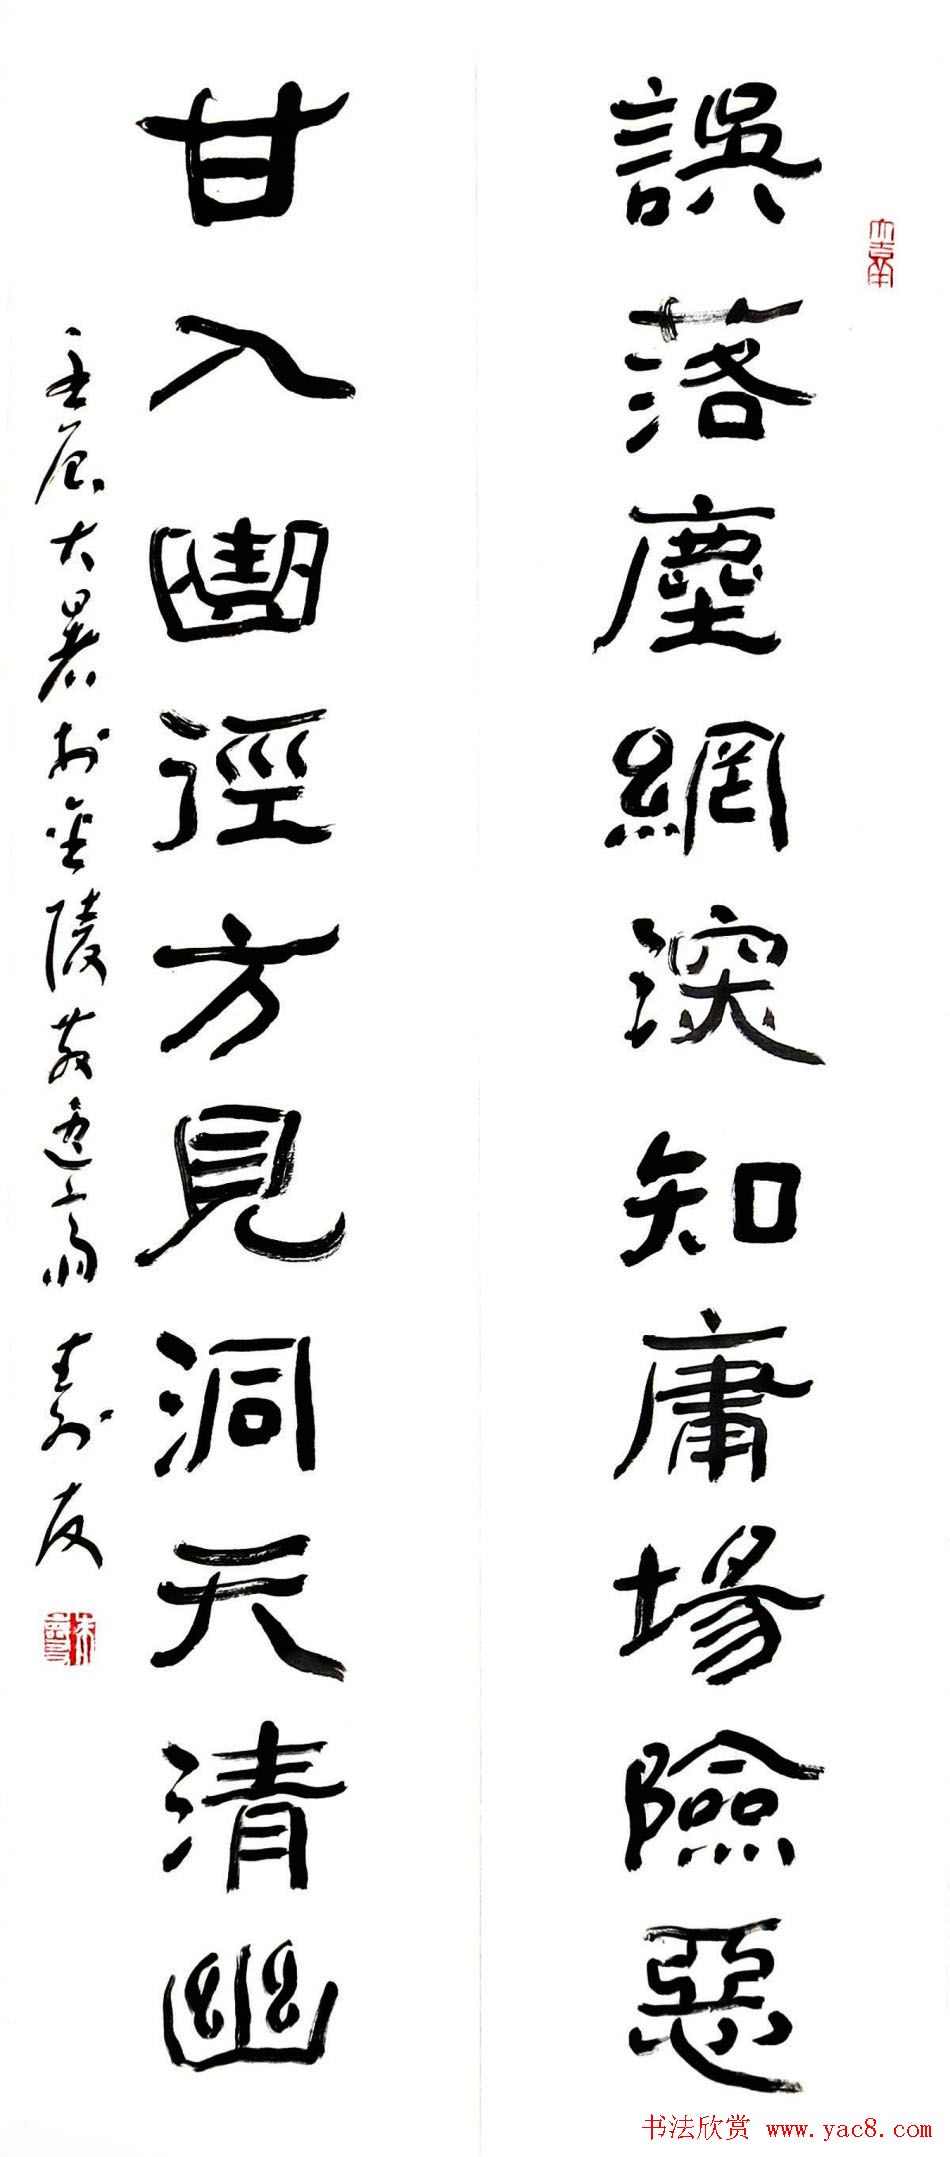 誤落塵網深知庸場險惡
甘入徑方見洞天清幽
壬辰大暑於金陵散齋 壽友
大吉羊
书法欣赏 www.yac8.com